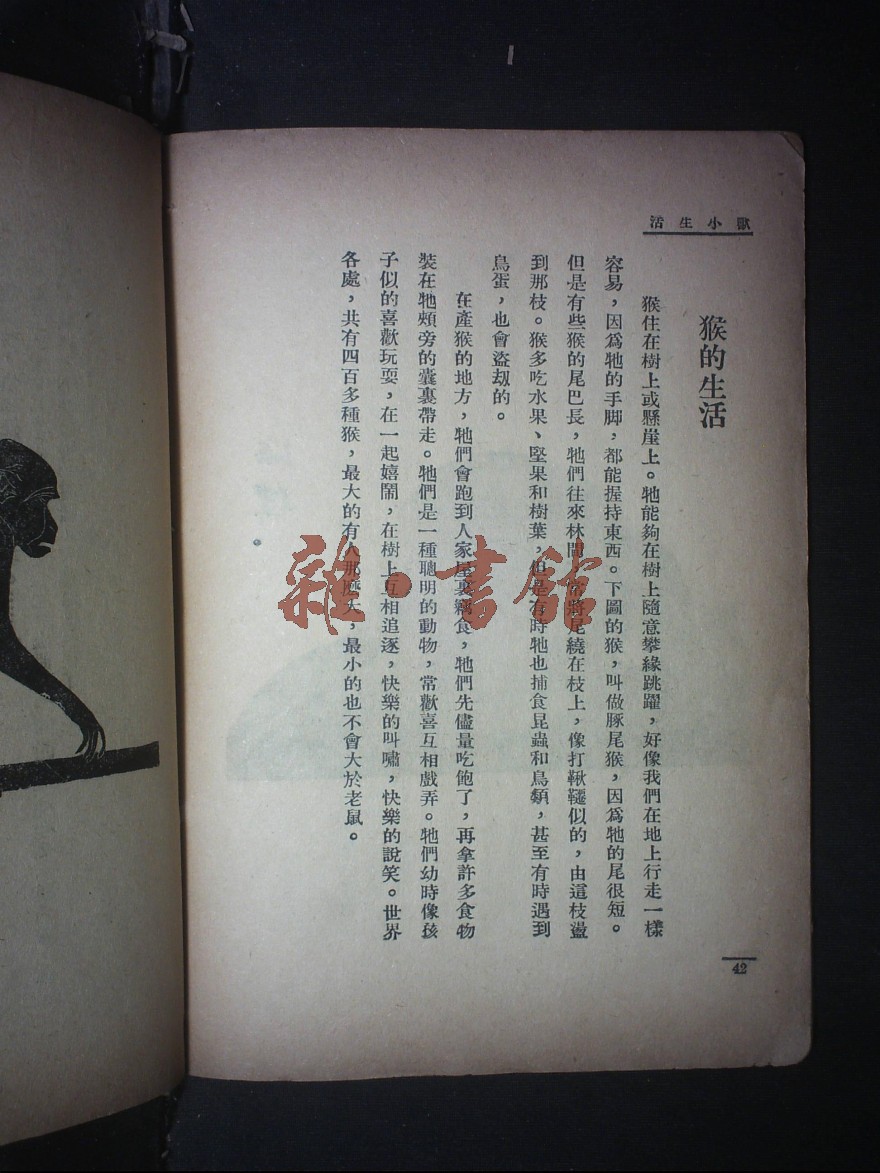 活生小獸
猴的生活
猴住在樹上或懸崖上。牠能夠在樹上隨意攀緣跳躍，好像我們在地上行走一樣
容易，因爲牠的手脚，都能握持東西。下圖的猴，叫做豚尾猴，因爲牠的尾很短。
但是有些猴的尾巴長，牠們往來林間，常將尾繞在枝上，像打鞦韆似的，由這枝盪
到那枝。猴多吃水果、堅果和樹葉，但是有時牠也捕食昆蟲和鳥類，甚至有時遇到
鳥蛋，也會盜刼的。
在產猴的地方，牠們會跑到人家屋裏竊食，牠們先儘量吃飽了，再拿許多食物
裝在牠頰旁的囊裏帶走。牠們是一種聰明的動物，常歡喜互相戲弄。牠們幼時像孩
子似的喜歡玩耍，在一起嬉鬧，在樹上互相追逐，快樂的叫嘯，快樂的說笑。世界
各處，共有四百多種猴，最大的有人那麽大，最小的也不會大於老鼠。
42
雜·書館